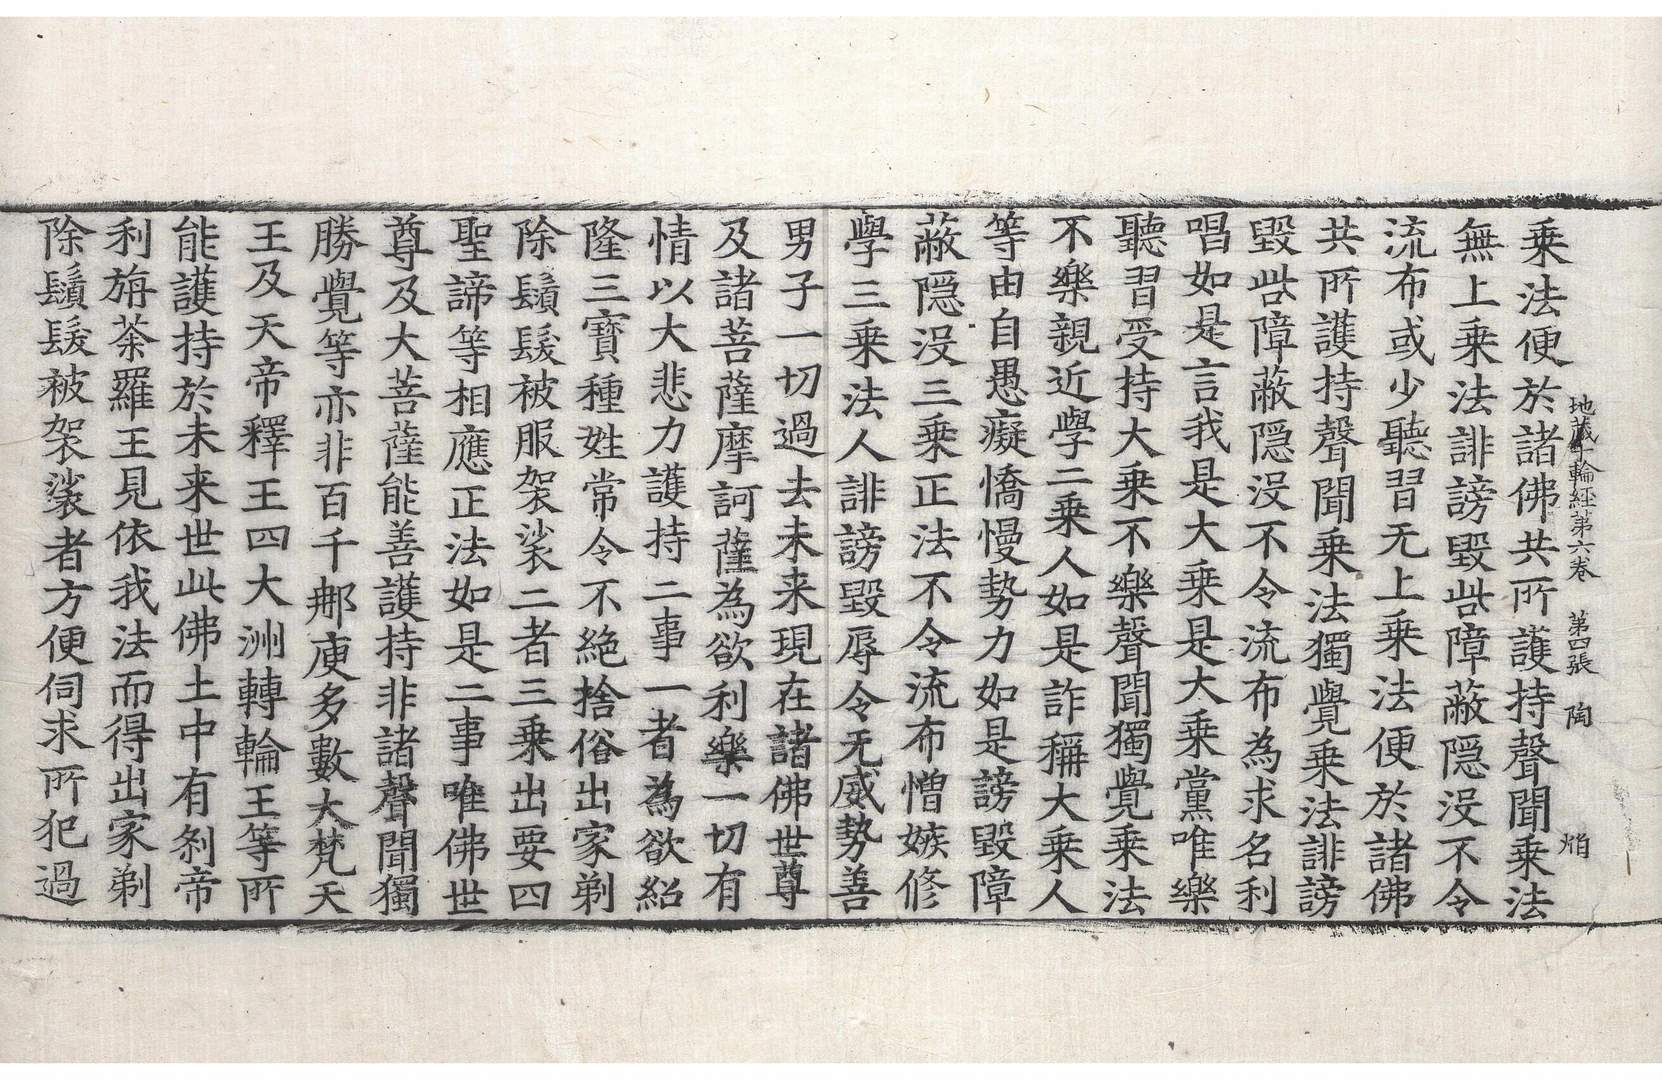 地藏十輪經第六卷 第四張 陶 焰
乗法便於諸佛共所護持聲聞乗法
無上乗法誹謗毀呰障蔽隱没不令
流布或少聽習无上乗法便於諸佛
共所護持聲聞乗法獨覺乗法誹謗
毀呰障蔽隱没不令流布為求名利
唱如是言我是大乗是大乗黨唯樂
聽習受持大乗不樂聲聞獨覺乗法
不樂親近學二乗人如是詐稱大乗人
等由自愚癡憍慢勢力如是謗毀障
蔽隱没三乗正法不令流布憎嫉修
學三乗法人誹謗毀辱令无威勢善
男子一切過去未来現在諸佛世尊
及諸菩薩摩訶薩為欲利樂一切有
情以大悲力護持二事一者為欲紹
隆三寶種姓常令不絶捨俗出家剃
除鬚髮被服袈裟二者三乗出要四
聖諦等相應正法如是二事唯佛世
尊及大菩薩能善護持非諸聲聞獨
勝覺等亦非百千那庾多數大梵天
王及天帝釋王四大洲轉輪王等所
能護持於未来世此佛土中有刹帝
利旃荼羅王見依我法而得出家剃
除鬚髮被袈裟者方便伺求所犯過